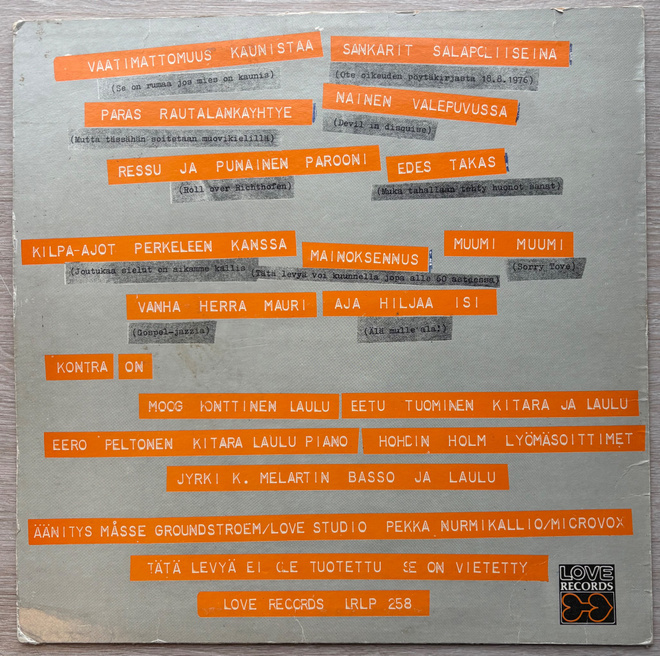 VAATIMATTOMUUS KAUNISTAA
(Se on rumaa jos mies on kaunis)
SANKARIT SALAPOLIISEINA
(Ote oikeuden pöytäkirjasta 18.8.1976)
PARAS RAUTALANKAYHTYE
(Mutta tässähän soitetaan muovikielillä)
NAINEN VALEPUVUSSA
(Devil in disguise)
RESSU JA PUNAINEN PAROONI
(Roll over Richthofen)
EDES TAKAS
(Muka tahallaan tehty huonot sanat)
KILPA-AJOT PERKELEEN KANSSA
(Joutukaa sielut on aikamme kallis
MAINOKSENNUS
(Tätä levyä voi kuunnella jopa alle 60 asteessa)
MUUMI MUUMI
(Sorry Tove)
VANHA HERRA MAURI
(Gospel-jazzia)
AJA HILJAA ISI
(Älä mulle ala!)
KONTRA ON
MOOG KONTTINEN LAULU
EETU TUOMINEN KITARA JA LAULU
EERO PELTONEN KITARA LAULU PIANO
HOHDIN HOLM LYÖMÄSOITTIMET
JYRKI K. MELARTIN BASSO JA LAULU
ÄÄNITYS MÅSSE GROUNDSTROEM/LOVE STUDIO PEKKA NURMIKALLIO/MICROVOX
TÄTÄ LEVYÄ EI OLE TUOTETTU SE ON VIETETTY
LOVE RECORDS LRLP 258
LOVE
RECORDS